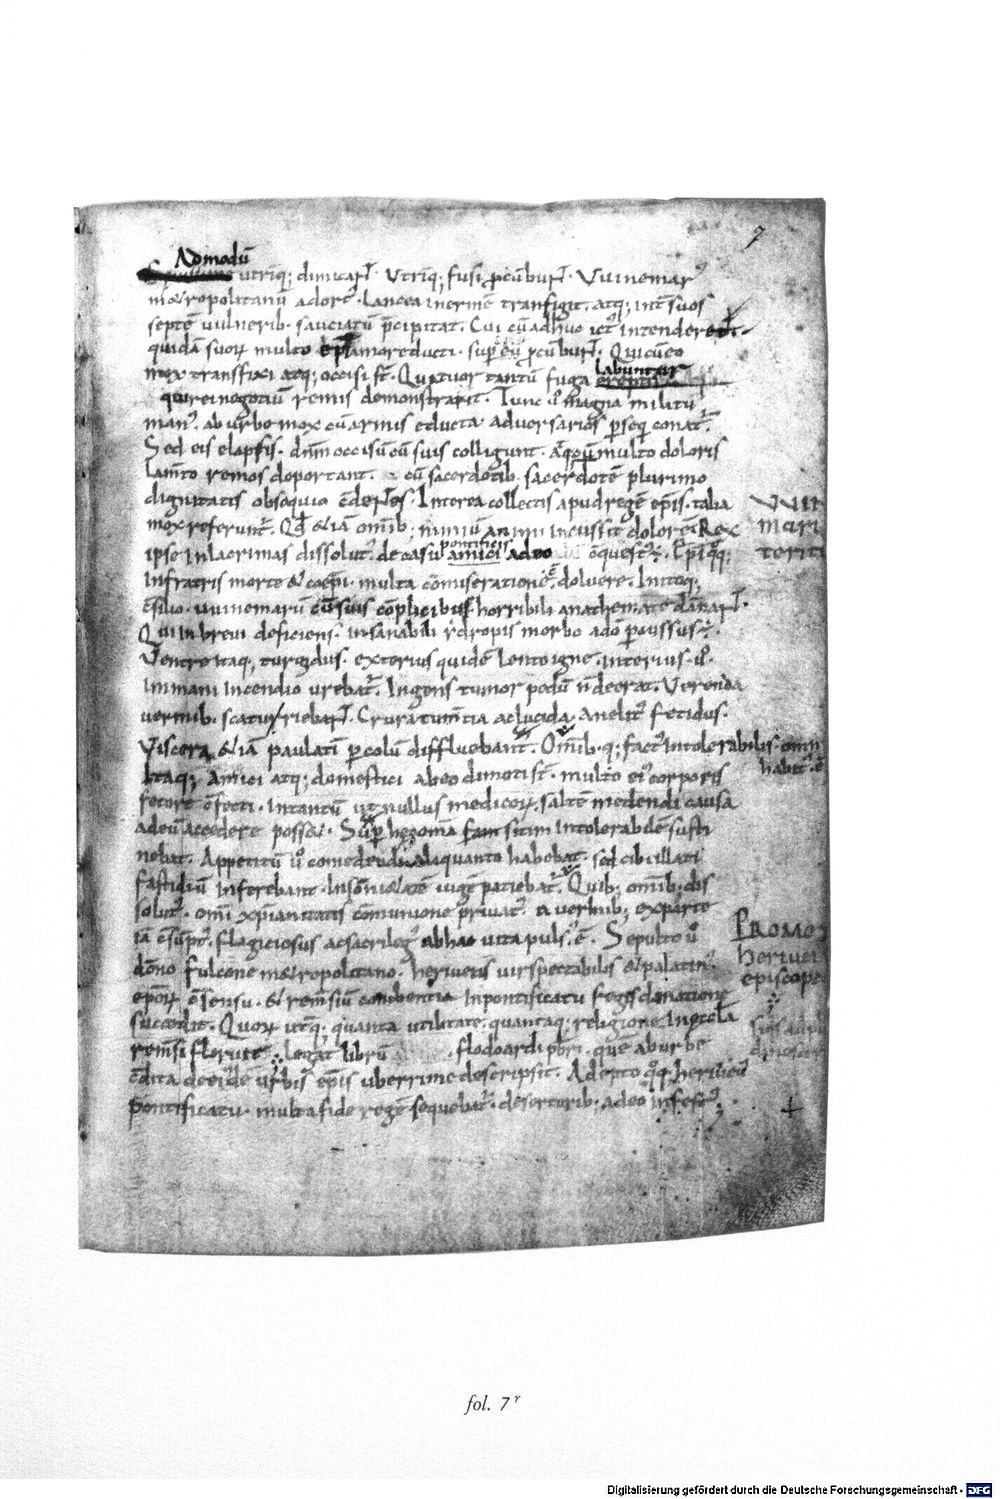 7
Admodū
utriq; dimicarł. Vtriq; fusi ꝓcūburł. Vuinemar'
m&ropolitanū adors'. Lancea inermē transfigit. atq; int̄ suos
septē uulnerib. sauciatū p̄cipitat. Cui cū adhuc ict' intenderet.
quidā suorꝝ multo ep̄i amore ducti. sup̄ eū ꝓcūburł. Qui cū eo
labuntur
mox transfixi atq; occisi st̄. Quatuor tantū fuga erepti
qui rei negotiū remis demonstrarł. Tunc u' magna militū
man', ab urbe mox cū armis educta. aduersarios p̄seq conat̄.
Sed eis elapsis. dn̄m occisū cū suis colligunt. a'q; cū multo doloris
lam̄to remos deportant. cū sacerdotib. sacerdotē plurimo
dignitatis obsequio c̄deñtes. Interea collectis apud regē ep̄is. talia
mox referunt̄. Qđ &iā omīb; nimiū animi incussit dolorē. Rex
pontificis
ipse in lacrimas dissolut'. de casu amici adeo c̄questus. Ep̄i qq;
infratris morte & coep̄i. multa c̄miseratione doluere. Initoq;
c̄silio. uuinemarū cū suis cōplicibus. horribili anathemate dānarł.
Qui in breui deficiens. insanabili ydropis morbo adō p̄assus.
Ventre itaq; turgidus. exterius quidē lento igne. interius u'.
Inmani incendio urebat̄. Ingens tumor pedū ñ deerat. Verenda
uermib. scaturriebarł. Crura tum̄tia ac lucida. Anelit' fetidus.
Viscera &iā paulatī ꝑ colū diffluebant. Omīb. q; fact' intolerabilis. omn
habit' ē
Itaq; amici atq; domestici ab eo dimoti st̄. multo ei' corporis
fetore c̄fecti. Intantū ut nullus medicorꝝ. saltē medendi causa
ad eū accedere poss&. Sup̄ hec oma &iam sitim intolerabilē susti
nebat. Appetitū u' comedendi aliquanto habebat. sed cibi illati
fastidiū inferebant. Insōni&atē iugē patiebat̄. Quib; omīb; dis
solut'. omī xp̄ianitatis cōmunione priuat'. a uermib; ex parte
iā c̄sūpt'. flagiciosus ac sacrileg' ab hac uita puls' ē. Sepulto u'
dōno fulcone m&ropolitano. heriueus uir spectabilis & palatin'
ep̄orꝝ c̄sensu. & rem̄siū conibentia in pontificatu regis donatione
succedit. Quorꝝ utq; quanta utilitate. quantaq; religione in eccl̄a
rem̄si floruit. legat librū flodoardi pb̄ri. quē ab urbe
c̄dita de ei'de urbis ep̄is uberrime descripsit. Adepto qq; heriueus
pontificatu. multa fide regē sequebat̄. desertorib. adeo infest'.
VVIN
mari
interit
PROMO
heriuei
episcopa
fol. 7 r
Digitalisierung gefördert durch die Deutsche Forschungsgemeinschaft - DFG